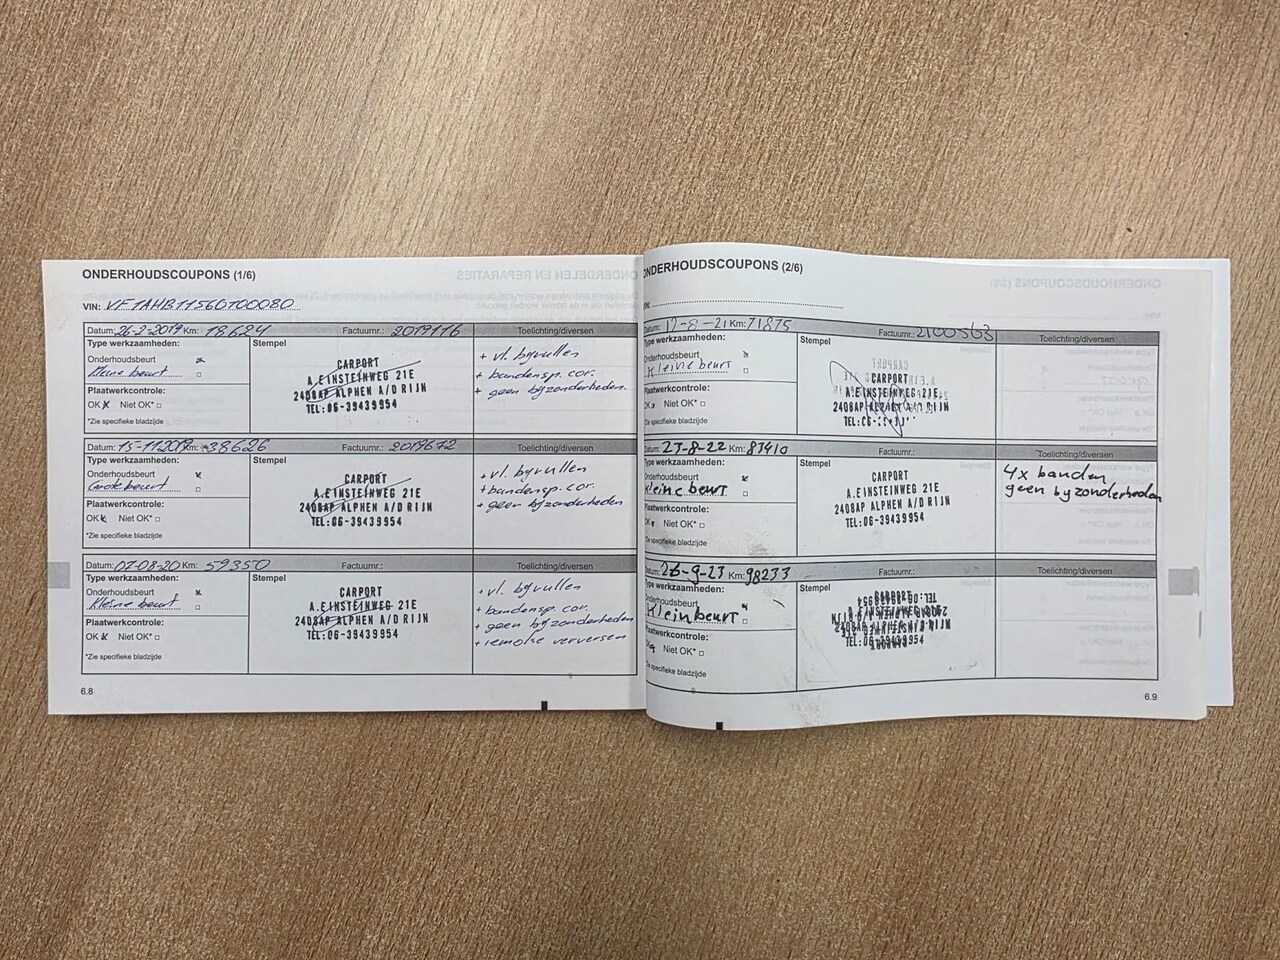 ONDERHOUDSCOUPONS (1/6)
VIN: VF1AHB11560T00080
Datum: 26-2-2019 Km: 18624 Factuurnr.: 2019116 Toelichting/diversen
Type werkzaamheden: Stempel
Onderhoudsbeurt
kleine beurt
Plaatwerkcontrole:
OK Niet OK*
*Zie specifieke bladzijde
CARPORT
A.EINSTEINWEG 21E
2408AP ALPHEN A/D RIJN
TEL:06-39439954
+ vl. byvullen
+ bandensp. cor.
+ geen byzonderheden.
Datum: 15-11-2019 Km: 38626 Factuurnr.: 2019672 Toelichting/diversen
Type werkzaamheden: Stempel
Onderhoudsbeurt
Grote beurt
Plaatwerkcontrole:
OK Niet OK*
*Zie specifieke bladzijde
CARPORT
A.EINSTEINWEG 21E
2408AP ALPHEN A/D RIJN
TEL:06-39439954
+ vl. byvullen
+ bandensp. cor.
+ geen byzonderheden
Datum: 07-08-20 Km: 59350 Factuurnr.: Toelichting/diversen
Type werkzaamheden: Stempel
Onderhoudsbeurt
kleine beurt
Plaatwerkcontrole:
OK Niet OK*
*Zie specifieke bladzijde
CARPORT
A.EINSTEINWEG 21E
2408AP ALPHEN A/D RIJN
TEL:06-39439954
+ vl. byvullen
+ bandensp. cor.
+ geen byzonderheden
+ remolie verversen
6.8
ONDERHOUDSCOUPONS (2/6)
VIN:
Datum: 17-8-21 Km: 71875 Factuurnr.: 2100563 Toelichting/diversen
Type werkzaamheden: Stempel
Onderhoudsbeurt
kleine beurt
Plaatwerkcontrole:
OK Niet OK*
*Zie specifieke bladzijde
CARPORT
A.EINSTEINWEG 21E
2408AP ALPHEN A/D RIJN
Datum: 23-8-22 Km: 83410 Factuurnr.: Toelichting/diversen
Type werkzaamheden: Stempel
Onderhoudsbeurt
kleine beurt
Plaatwerkcontrole:
OK Niet OK*
*Zie specifieke bladzijde
CARPORT
A.EINSTEINWEG 21E
2408AP ALPHEN A/D RIJN
TEL:06-39439954
4x banden
geen byzonderheden
Datum: 26-9-23 Km: 98233 Factuurnr.: Toelichting/diversen
Type werkzaamheden: Stempel
Onderhoudsbeurt
kleinbeurt
Plaatwerkcontrole:
Niet OK*
*Zie specifieke bladzijde
6.9